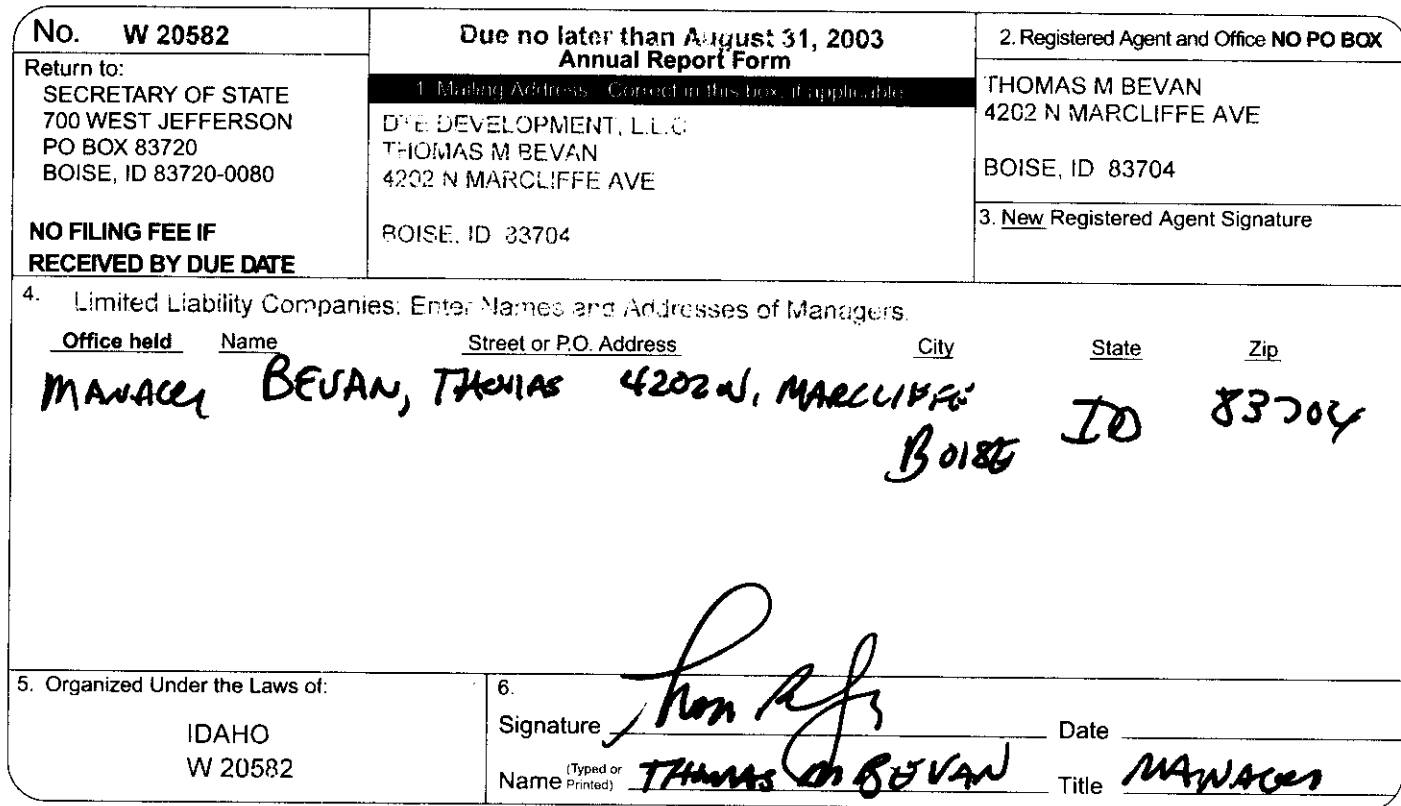 No. W 20582
Return to:
SECRETARY OF STATE
700 WEST JEFFERSON
PO BOX 83720
BOISE, ID 83720-0080
NO FILING FEE IF
RECEIVED BY DUE DATE
Due no later than August 31, 2003
Annual Report Form
1. Mailing Address: Correct in this box, if applicable
DEVELOPMENT, L.L.C
THOMAS M BEVAN
4202 N MARCLIFFE AVE
BOISE, ID 83704
2. Registered Agent and Office NO PO BOX
THOMAS M BEVAN
4202 N MARCLIFFE AVE
BOISE, ID 83704
3. New Registered Agent Signature
4. Limited Liability Companies: Enter Names and Addresses of Managers.
Office held Name Street or P.O. Address City State Zip
MANAGER BEVAN, THOMAS 4202 N. MARCLIFFE
BOISE ID 83704
5. Organized Under the Laws of:
IDAHO
W 20582
6.
Signature Date
Name (Typed or Printed) THOMAS M BEVAN Title MANAGER